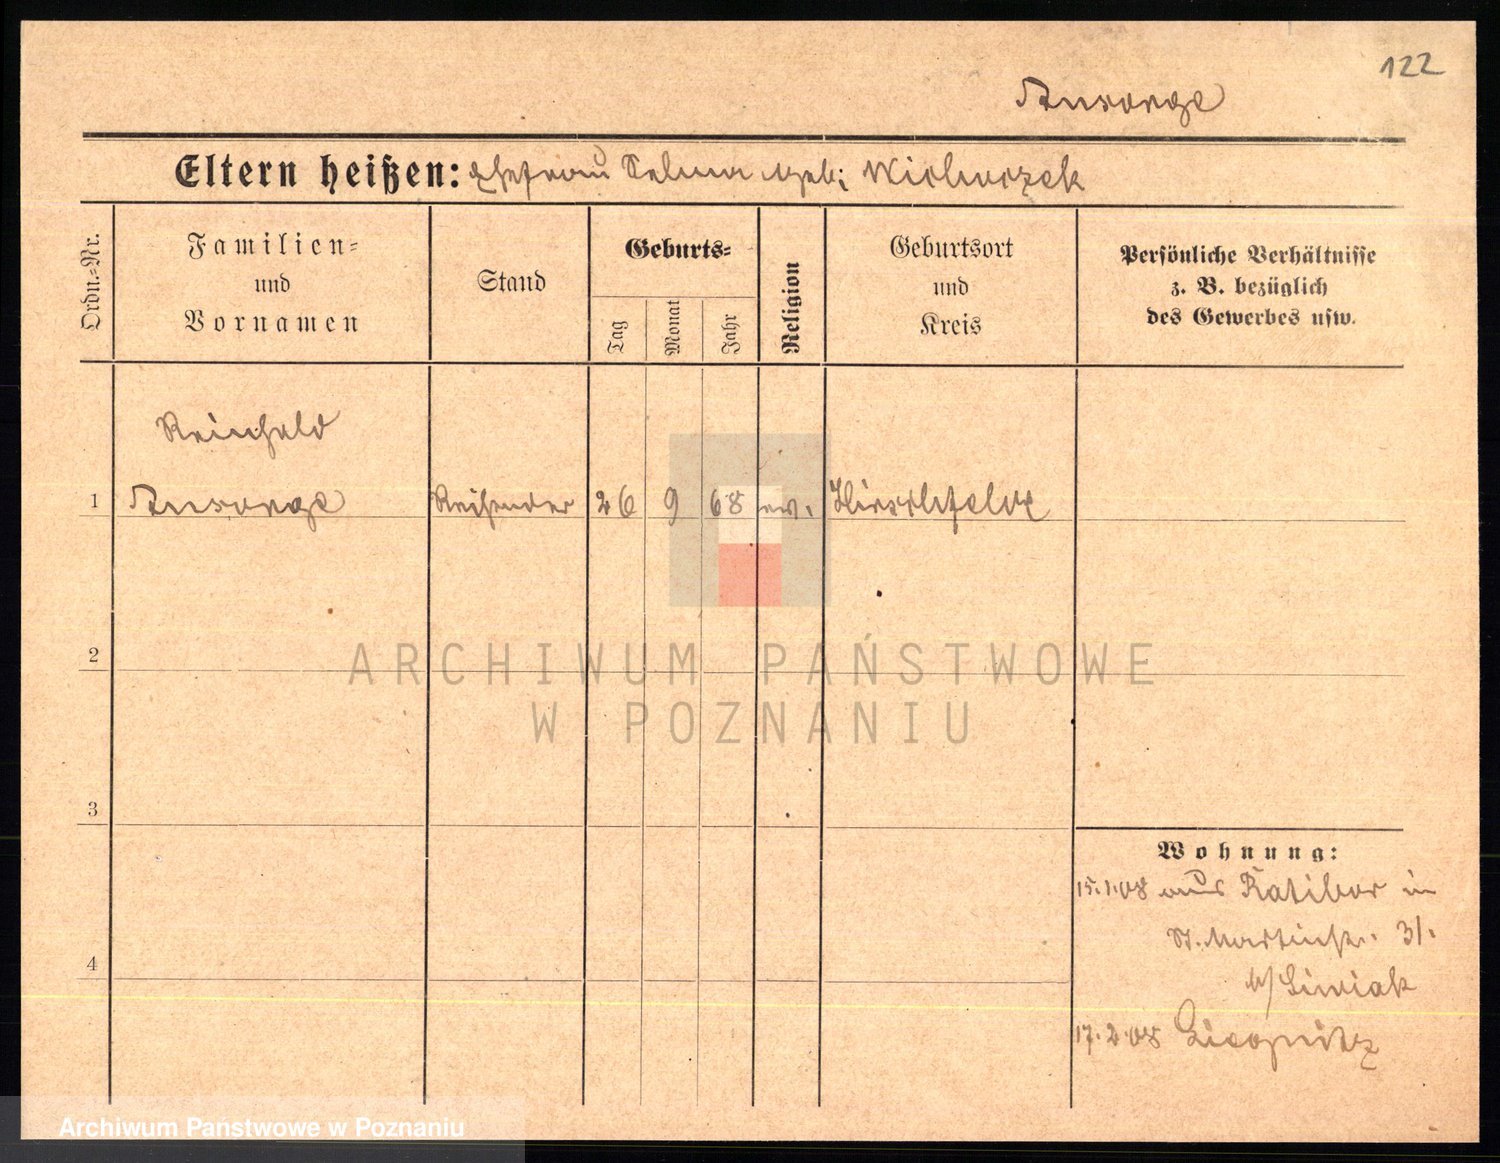 122
Ansorge
Eltern heißen: Ehefrau Selma geb:
Ordn.-Nr.
Familien-
und
Vornamen
Stand
Geburts-
Tag
Monat
Jahr
Religion
Geburtsort
und
Kreis
Persönliche Verhältnisse
z. B. bezüglich
des Gewerbes usw.
Reinhold
1 Ansorge Reisender 26 9 68 ev. Hirschfelde
2
3
4
Wohnung:
15.1.08 aus Ratibor in
St. Martinstr. 31.
b/ Siwiak
17.2.08 Liegnitz
ARCHIWUM PAŃSTWOWE
W POZNANIU
Archiwum Państwowe w Poznaniu